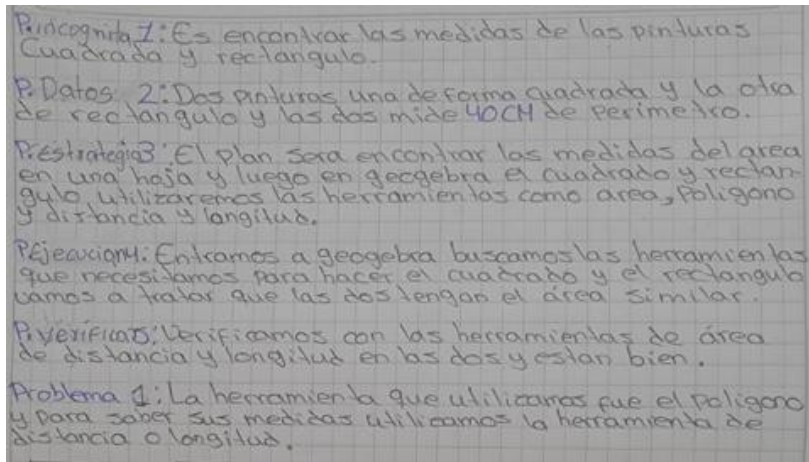 P.incognita 1: Es encontrar las medidas de las pinturas
Cuadrada y rectangulo.
P. Datos 2: Dos pinturas una de forma cuadrada y la otra
de rectangulo y las dos mide 40CM de perimetro.
P.Estrategia3: El plan sera encontrar las medidas del area
en una hoja y luego en geogebra el cuadrado y rectan-
gulo utilizaremos las herramientas como area, poligono
y distancia y longitud.
P.Ejecucion4: Entramos a geogebra buscamos las herramientas
que necesitamos para hacer el cuadrado y el rectangulo
vamos a tratar que las dos tengan el área similar.
P.Verificar5: Verificamos con las herramientas de área
de distancia y longitud en las dos y estan bien.
Problema 1: La herramienta que utilizamos fue el poligono
y para saber sus medidas utilizamos la herramienta de
distancia o longitud.